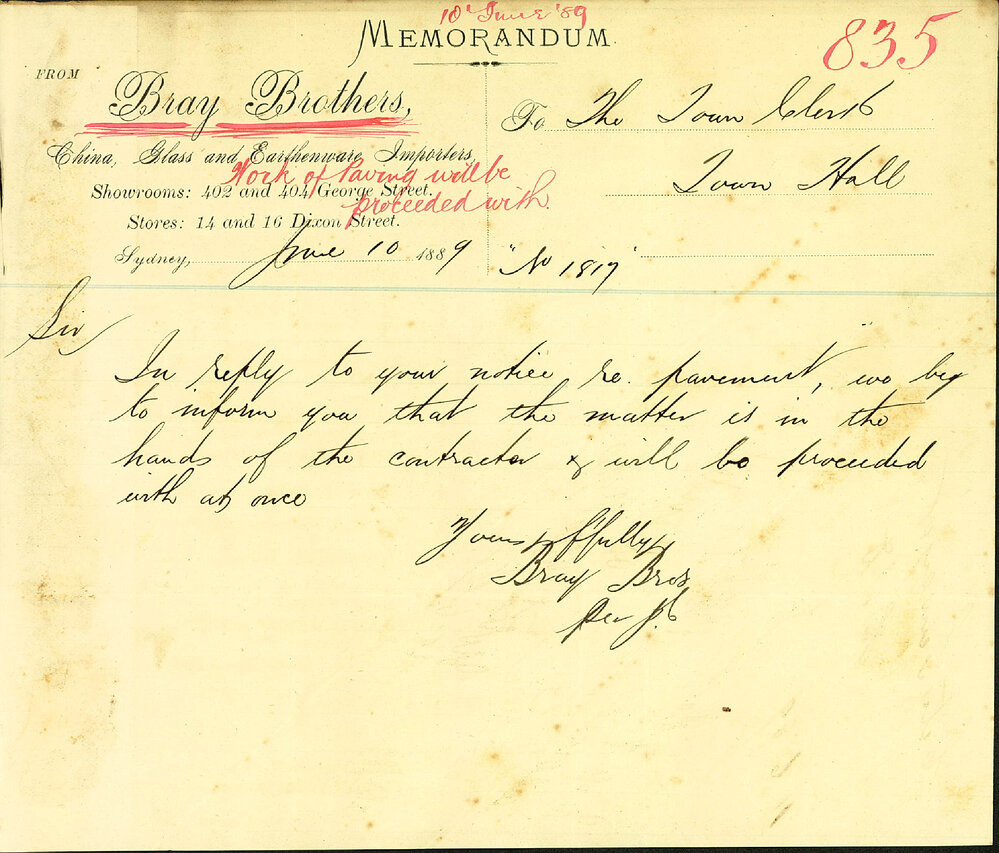 10 June '89
MEMORANDUM
835
FROM
Bray Brothers,
China, Glass and Earthenware Importers,
Work of Paving will be
Showrooms: 402 and 404 George Street.
proceeded with.
Stores: 14 and 16 Dixon Street.
Sydney, June 10 1889
To The Town Clerk
Town Hall
"No 1817"
Sir
In reply to your notice re. pavement, we beg
to inform you that the matter is in the
hands of the contractor & will be proceeded
with at once
Yours ffully
Bray Bros
per